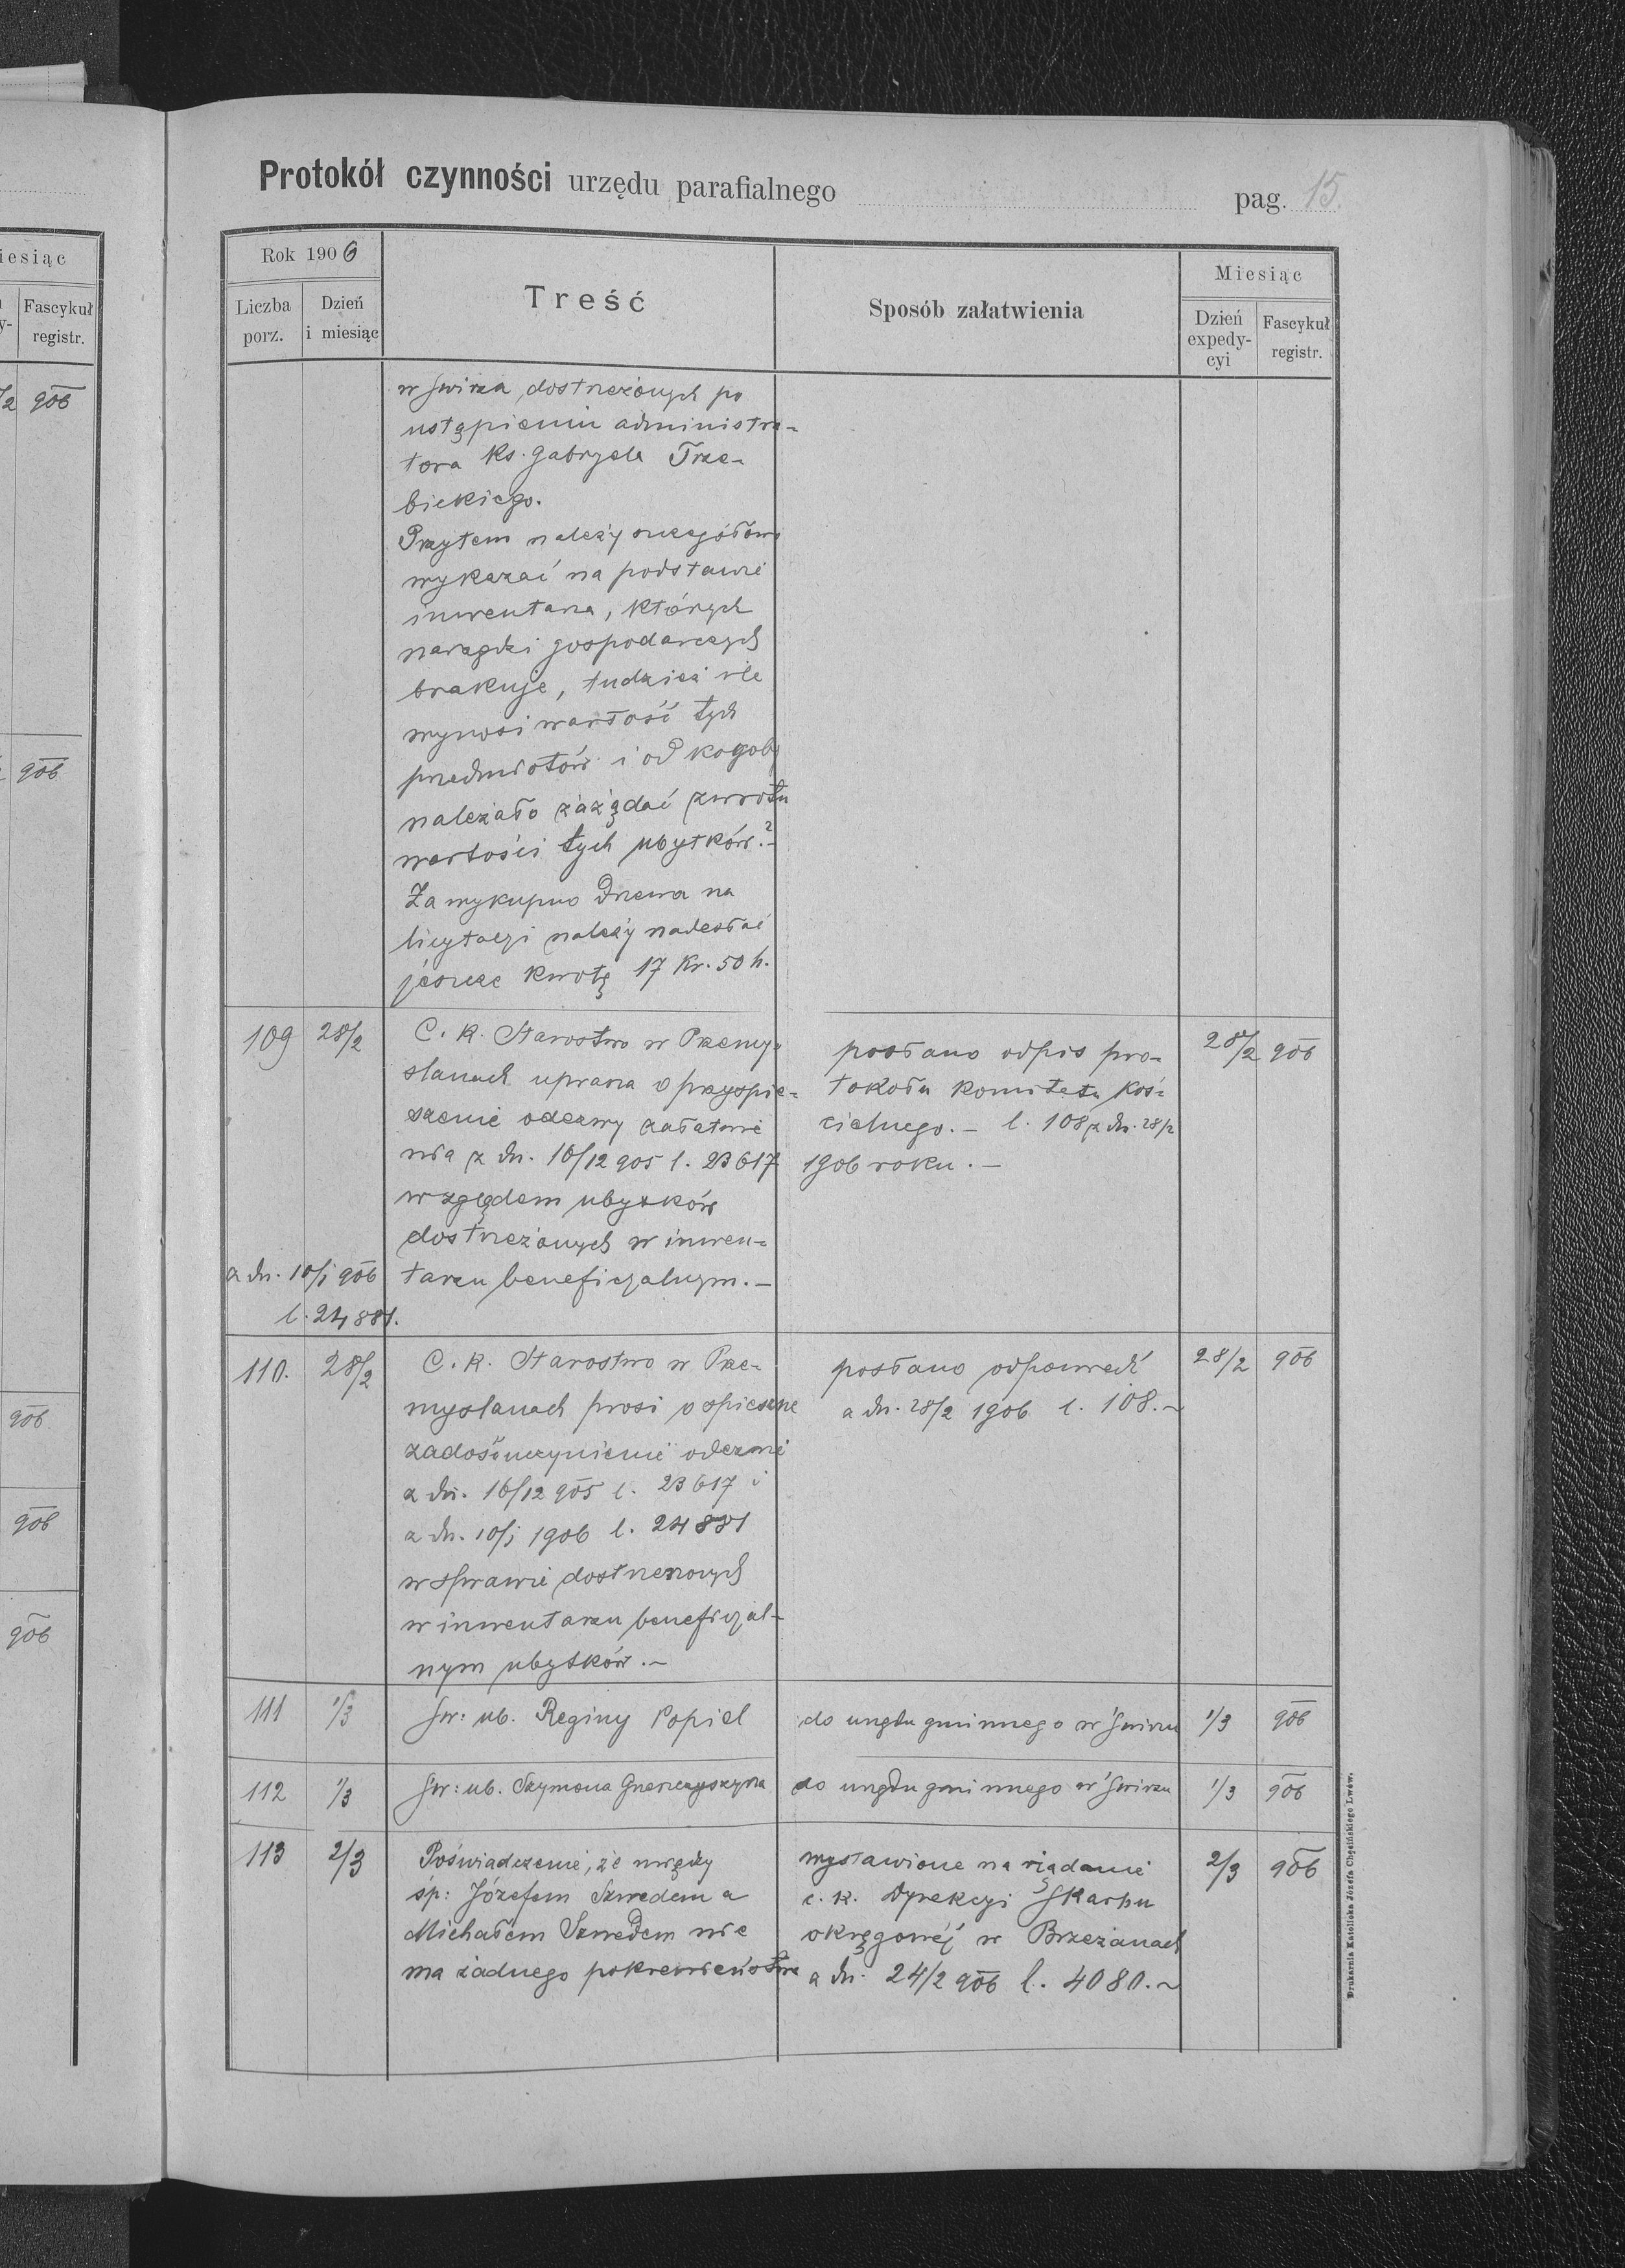 Protokół czynności urzędu parafialnego pag. 15.
Rok 1906
Liczba porz.
Dzień i miesiąc
Treść
Sposób załatwienia
Miesiąc
Dzień expedy-cyi
Fascykuł registr.
w Świrzu, dostrzeżonych po
ustąpieniu administra-
tora Ks. Gabryela Trze-
bickiego.
Przytem należy szczegółowo
wykazać na podstawie
inwentarza, których
narzędzi gospodarczych
brakuje, tudzież ile
wynosi wartość tych
przedmiotów i od kogoby
należało zażądać zwrotu
wartości tych ubytków?-
Za wykupno drzewa na
licytacyi należy nadesłać
jeszcze kwotę 17 Kr. 50 h.
109 28/2 C. K. Starostwo w Przemy-
slanach uprasza o przyspie-
szenie odezwy załatwie
nia z dn. 16/12 905 l. 23617
względem ubytków
dostrzeżonych w inwen-
z dn. 10/1 906 tarzu beneficyalnym.-
l. 24881.
posłano odpis pro-
tokołu Komitetu Koś-
cielnego.- l. 108 z dn. 28/2
1906 roku.-
28/2 906
110. 28/2 C. K. Starostwo w Prze-
myslanach prosi o spieszne
zadośćuczynienie odezwie
z dn. 16/12 905 l. 23617 i
z dn. 10/1 1906 l. 24881
w sprawie dostrzeżonych
w inwentarzu beneficyal-
nym ubytków.-
posłano odpowiedź
z dn. 28/2 1906 l. 108.-
28/2 906
111 1/3 Św: ub. Reginy Popiel do urzędu gminnego w Świrzu 1/3 906
112 1/3 Św: ub. Szymona do urzędu gminnego w Świrzu 1/3 906
113 2/3 Poświadczenie, że między
śp: Józefem Szwedem a
Michałem Szwedem nie
ma żadnego pokrewieństwa
wystawione na żądanie
c. k. Dyrekcyi Skarbu
okręgowej w Brzeżanach
z dn. 24/2 906 l. 4080.-
2/3 906
Drukarnia Katolicka Józefa Chęcińskiego Lwów.
iesiąc
Fascykuł
registr.
/2 906
906
906
906
906